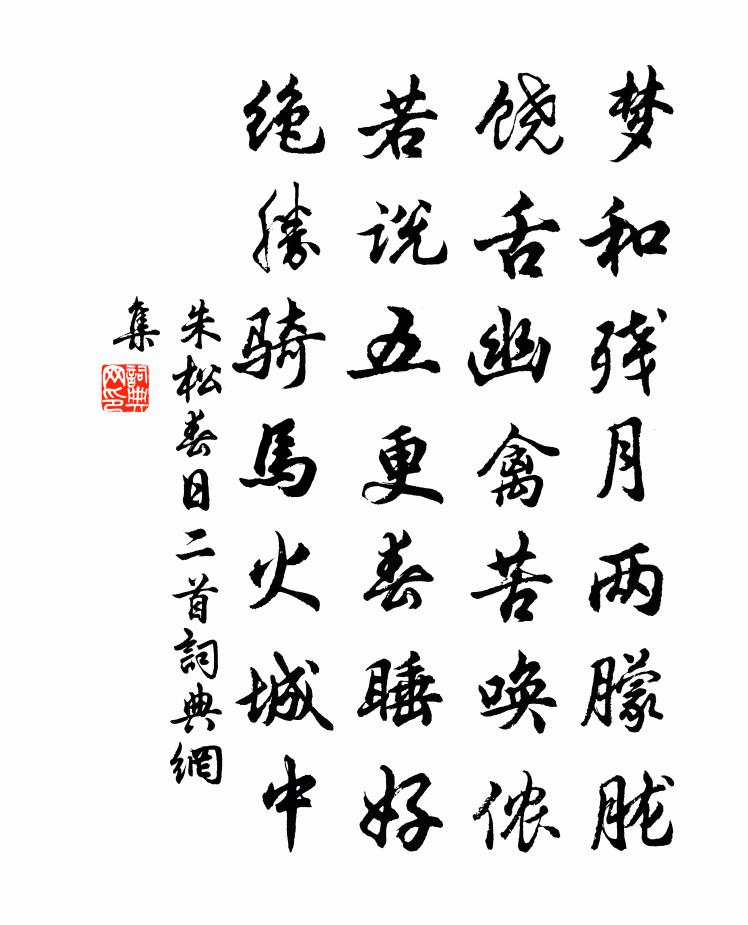 梦和残月两朦胧
饶舌幽禽苦唤侬
若说五更春睡好
绝胜骑马火城中
朱松春日二首詞典網
集
詞典網印